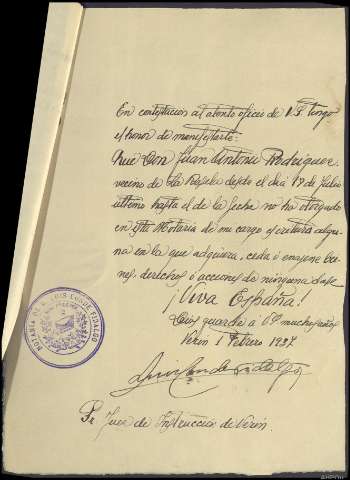 En contestación al atento oficio de V.S. tengo
el honor de manifestarle:
Que Don Juan Antonio Rodriguez
vecino de La Rasela desde el dia 19 de Julio
ultimo hasta el de la fecha no ha otorgado
en esta Notaria de mi cargo escritura algu-
na en la que adquiera, ceda ó enajene bie-
nes, derechos ó acciones de ninguna clase.
¡Viva España!
Dios guarde á VS muchos años
Verin 1 Febrero 1937
Luis Conde Fidalgo
NOTARIA DE D. LUIS CONDE FIDALGO
Sr Juez de Instrucción de Verin.